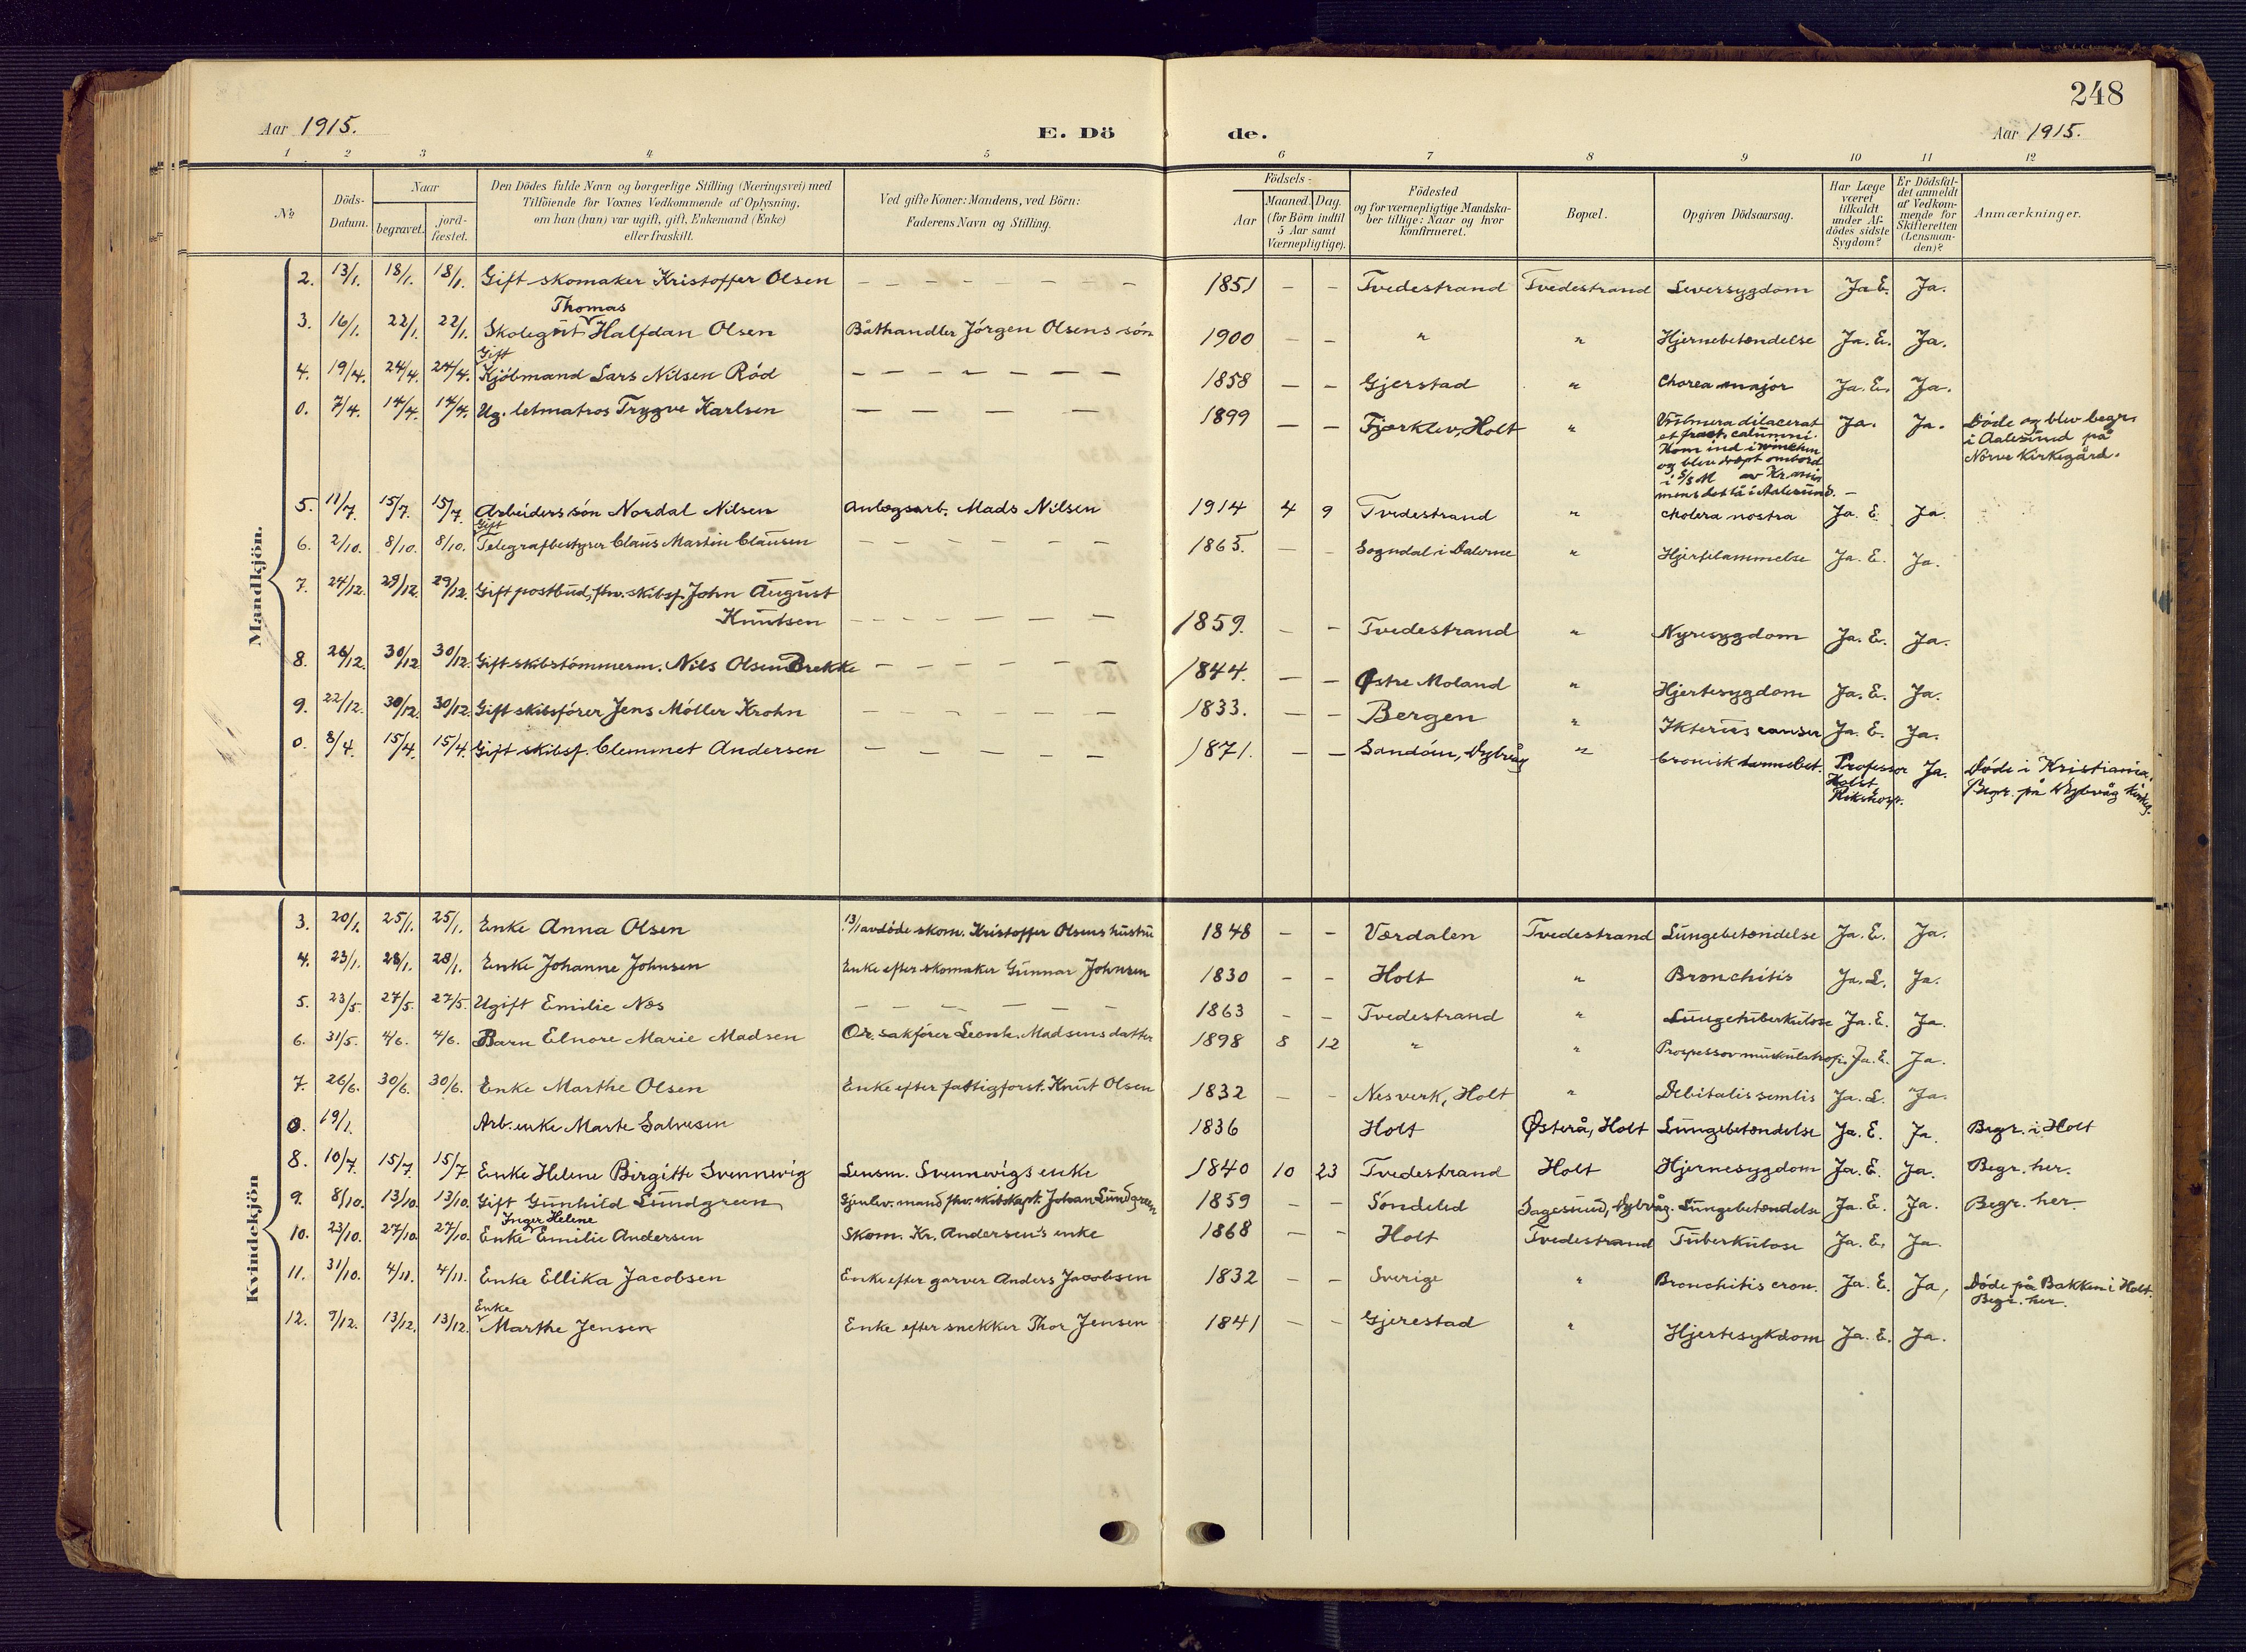 248
Aar 1915.
E. Dö
de.
Aar 1915.
1 2 3 4 5 6 7 8 9 10 11 12
No
Döds-
Datum.
Naar
begravet.
jord-
fæstet.
Den Dödes fulde Navn og borgerlige Stilling (Næringsvei) med
Tilföiende for Voxnes Vedkommende af Oplysning,
om han (hun) var ugift, gift, Enkemand (Enke)
eller fraskilt.
Ved gifte Koner: Mandens, ved Börn:
Faderens Navn og Stilling.
Födsels-
Aar
Maaned. Dag.
(for Börn indtil
5 Aar samt
Værnepligtige).
Födested
og for værnepligtige Mandska-
ber tillige: Naar og hvor
konfirmeret.
Bopæl.
Opgiven Dödsaarsag.
Har Læge
været
tilkaldt
under Af-
dödes sidste
Sygdom?
Er Dödsfal-
det anmeldt
af Vedkom-
mende for
Skifteretten
(Lensman-
den)?
Anmærkninger.
Mandkjön.
2. 13/1. 18/1. 18/1. Gift skomaker Kristoffer Olsen – – – – – – – 1851 – – Tvedestrand Tvedestrand Leversygdom Ja E. Ja.
Thomas
3. 16/1. 22/1. 22/1. Skolegut Halfdan Olsen Båthandler Jörgen Olsens sön 1900 – – " " Hjernebetændelse Ja. E. Ja.
Gift
4. 19/4. 24/4. 24/4. Kjöbmand Lars Nilsen Röd – – – – – – – 1858 – – Gjerstad " Chorea major Ja. E. Ja.
0. 7/4. 14/4. 14/4. Ug. letmatros Trygve Karlsen – – – – 1899 – – Fjærklev, Holt " dilacerat Ja. Ja. Döde og blev begr.
et fract.
i Aalesund på
Kom ind i winchen
Nörve Kirkegård.
og blev dræpt ombord
i S/S
mens det lå i Aalesund. –
5. 11/7. 15/7. 15/7. Arbeiders sön Nordal Nilsen Anlægsarb. Mads Nilsen 1914 4 9 Tvedestrand " cholera nostra Ja. E. Ja.
Gift
6. 2/10. 8/10. 8/10. Telegrafbestyrer Claus Martin Clausen – – – – – – 1865. – – Sogndal i Dalerne " Hjertelammelse Ja. E. Ja.
7. 24/12. 29/12. 29/12. Gift postbud, fhv. skibsf. John August
Knutsen – – – – – – – 1859. – – Tvedestrand " Nyresygdom Ja. E. Ja.
8. 26/12. 30/12 30/12. Gift skibstömmerm. Nils Olsen Brekke – – – – – – 1844. – – Østre Moland " Hjertesygdom Ja. E. Ja.
9. 22/12. 30/12. 30/12. Gift skibsförer Jens Möller Krohn – – – – – – 1833. – – Bergen " Ikterus Ja. E. Ja.
0. 8/4. 15/4. 15/4. Gift skibsf. Clemmet Andersen – – – – – – 1871. – – Sandöen, Dybvåg " Cronisk tarmebet. Professor Ja. Döde i Kristiania.
Holst
Begr. på Dybvåg kirkeg.
Rikshosp.
Kvindekjön
3. 20/1. 25/1. 25/1. Enke Anna Olsen 13/1 avdöde skom. Kristoffer Olsens hustru 1848 – – Værdalen Tvedestrand Lungebetændelse Ja. E. Ja.
4. 23/1. 28/1. 28/1. Enke Johanne Johnsen Enke efter skomaker Gunnar Johnsen 1830 – – Holt " Bronchitis Ja. L. Ja.
5. 23/5. 27/5. 27/5. Ugift Emilie Næs – – – – – – 1863 – – Tvedestrand " Lungetuberkulose Ja. E. Ja.
6. 31/5. 4/6. 4/6. Barn Elnore Marie Madsen Or. sakförer Leonh. Madsens datter 1898 8 12 " " muskulatrofi. Ja. E. Ja.
7. 26/6. 30/6. 30/6. Enke Marthe Olsen Enke efter fattigforst. Knut Olsen 1832 – – Nesverk, Holt " Debitalis senilis Ja. L. Ja.
0. 19/1. Arb. enke Marte Salvesen 1836 Holt Österå, Holt Lungebetændelse Ja. E. Ja. Begr. i Holt
8. 10/7. 15/7. 15/7 Enke Helene Birgitte Svennevig Lensm. Svennevigs enke 1840 10 23 Tvedestrand Holt Hjernesygdom Ja. E. Ja. Begr. her.
9. 8/10. 13/10. 13/10. Gift Gunhild Lundgreen Gjenlev. mand fhv. skibskapt. Johan Lundgreen 1859 – – Söndeled Sagesund, Dybvåg. Lungebetændelse Ja. E. Ja. Begr. her.
Inger Helene
10. 23/10. 27/10. 27/10. Enke Emilie Andersen Skom. Kr. Andersen's enke 1868 – – Holt Tvedestrand Tuberkulose Ja. E. Ja.
11. 31/10. 4/11. 4/11. Enke Ellika Jacobsen Enke efter garver Anders Jacobsen 1832 – – Sverige " Bronchitis cron. Ja. E. Ja, Döde på Bakken i Holt.
Begr. her.
Enke
12. 9/12. 13/12. 13/12. Marthe Jensen Enke efter snekker Thor Jensen 1841 – – Gjerestad " Hjertesykdom Ja. E. Ja.